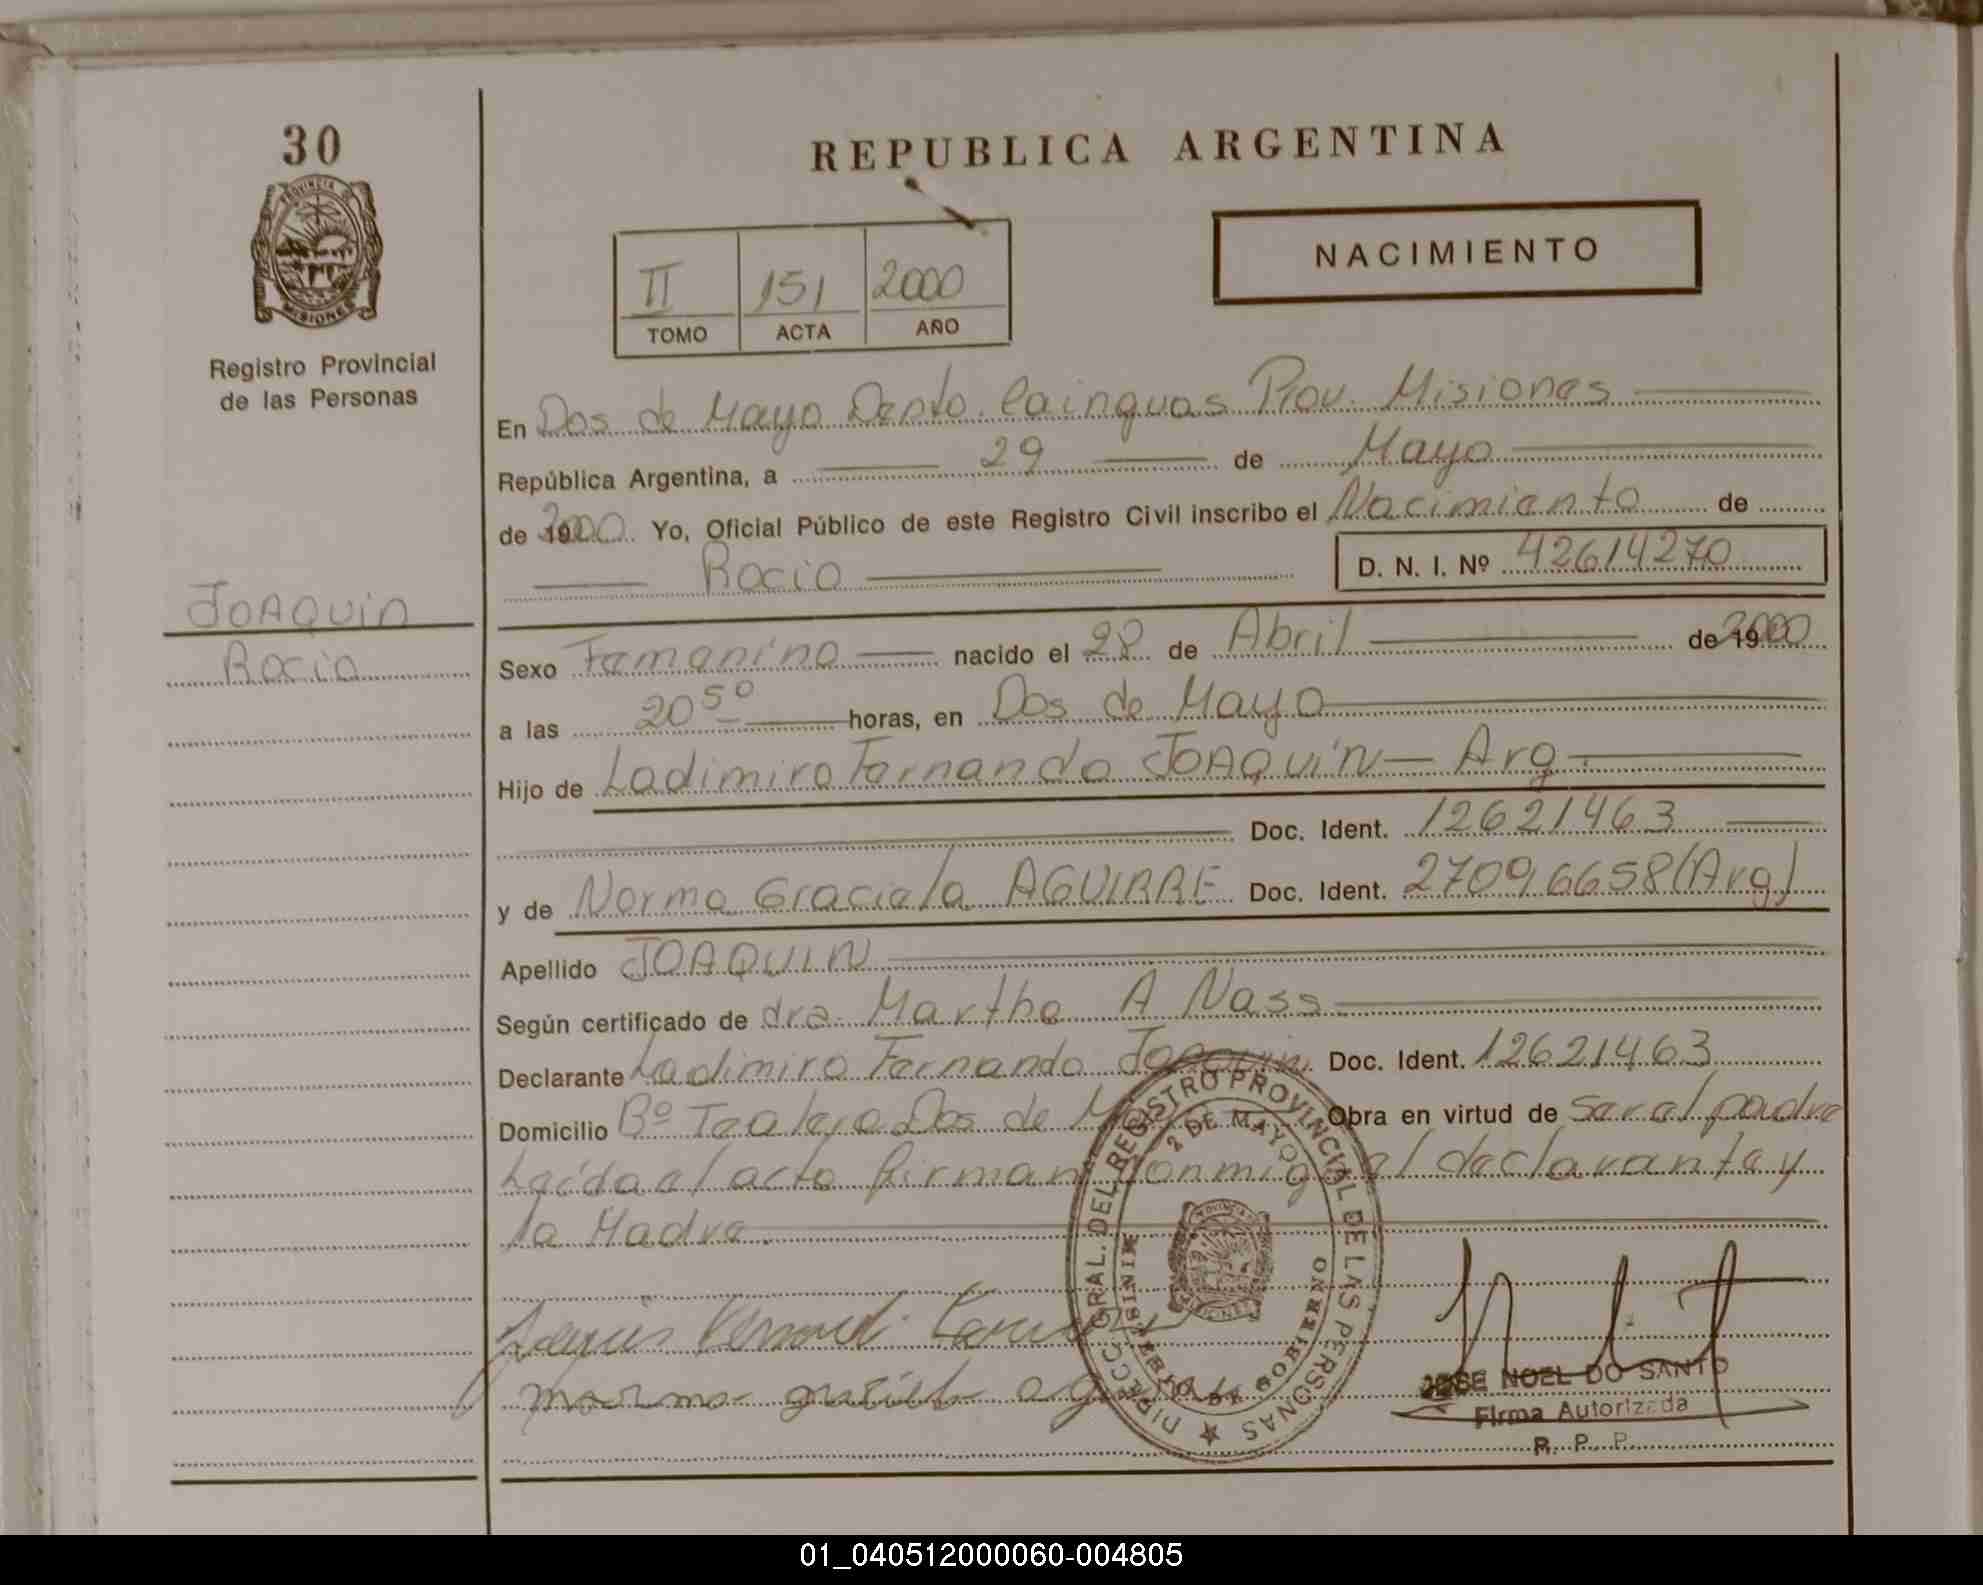 30
REPUBLICA ARGENTINA
PROVINCIA DE
MISIONES
Registro Provincial
de las Personas
NACIMIENTO
II 151 2000
TOMO ACTA AÑO
En Dos de Mayo Depto. Cainguas Prov. Misiones
República Argentina, a 29 de Mayo
de 2000 Yo, Oficial Público de este Registro Civil inscribo el Nacimiento de
Rocio D. N. I. Nº 42614270
JOAQUIN
Rocio
Sexo Femenino nacido el 28 de Abril de 192000
a las 20 50 horas, en Dos de Mayo
Hijo de Ladimiro Fernando JOAQUIN - Arg.
Doc. Ident. 12621463
y de Norma Graciela AGUIRRE Doc. Ident. 27096658 (Arg)
Apellido JOAQUIN
Según certificado de dra. Martha A Nass
Declarante Ladimiro Fernando Joaquin Doc. Ident. 12621463
Domicilio Bº Tealera Dos de Mayo Obra en virtud de ser el padre
Leída el acta firman conmigo el declarante y
la Madre.
DIRECC. GRAL. DEL REGISTRO PROVINCIAL DE LAS PERSONAS
2 DE MAYO
MINISTERIO DE GOBIERNO
JOSE NOEL DO SANTO
Firma Autorizada
R. P. P.
01_040512000060-004805